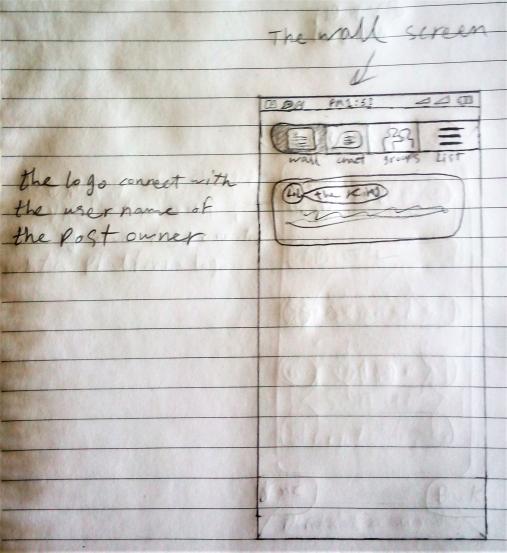 The wall screen
PM1:51
wall chat groups List
the King
the logo connect with
the user name of
the Post owner